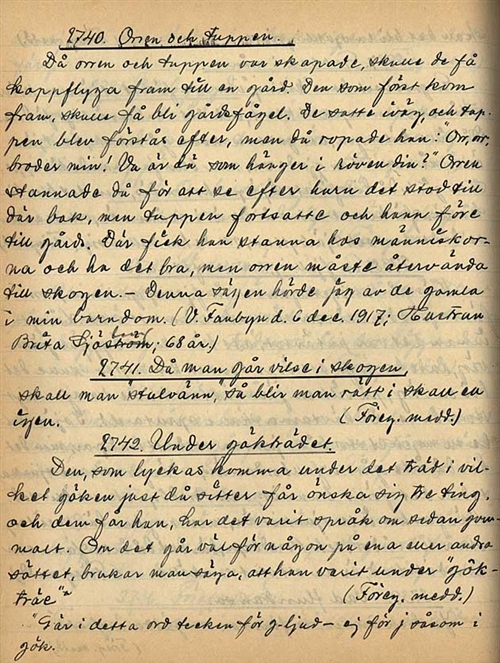 2740. Orren och tuppen.
Då orren och tuppen var skapade, skulle de få
kappflyga fram till en gård. Den som först kom
fram, skulle få bli gårdsfågel. De satte iväg, och tup-
pen blev förstås efter, men då ropade han: "Orr, orr,
broder min! Va är dä som hänger i röven din?" Orren
stannade då för att se efter huru det stod till
där bak, men tuppen fortsatte och hann före
till gårds. Där fick han stanna hos människor-
na och ha det bra, men orren måste återvända
till skogen. – Denna sägen hörde jag av de gamla
i min barndom. (V. Fanbyn d. 6 dec. 1917; Hustrun
Brita Sjöström; 68 år.)
2741. Då man går vilse i skogen,
skall man "stulvänn", så blir man rätt i skallen
igen. (Föreg. medd.)
2742. Under gökträdet.
Den, som lyckas komma under det träd i vil-
ket göken just då sitter får önska sig tre ting,
och dem får han, har det varit språk om sedan gam-
malt. Om det går väl för någon på ena eller andra
sättet, brukar man säga, att han varit under "gök-
träe"* (Föreg. medd.)
* G är i detta ord tecken för g-ljud – ej för j såsom i
gök.